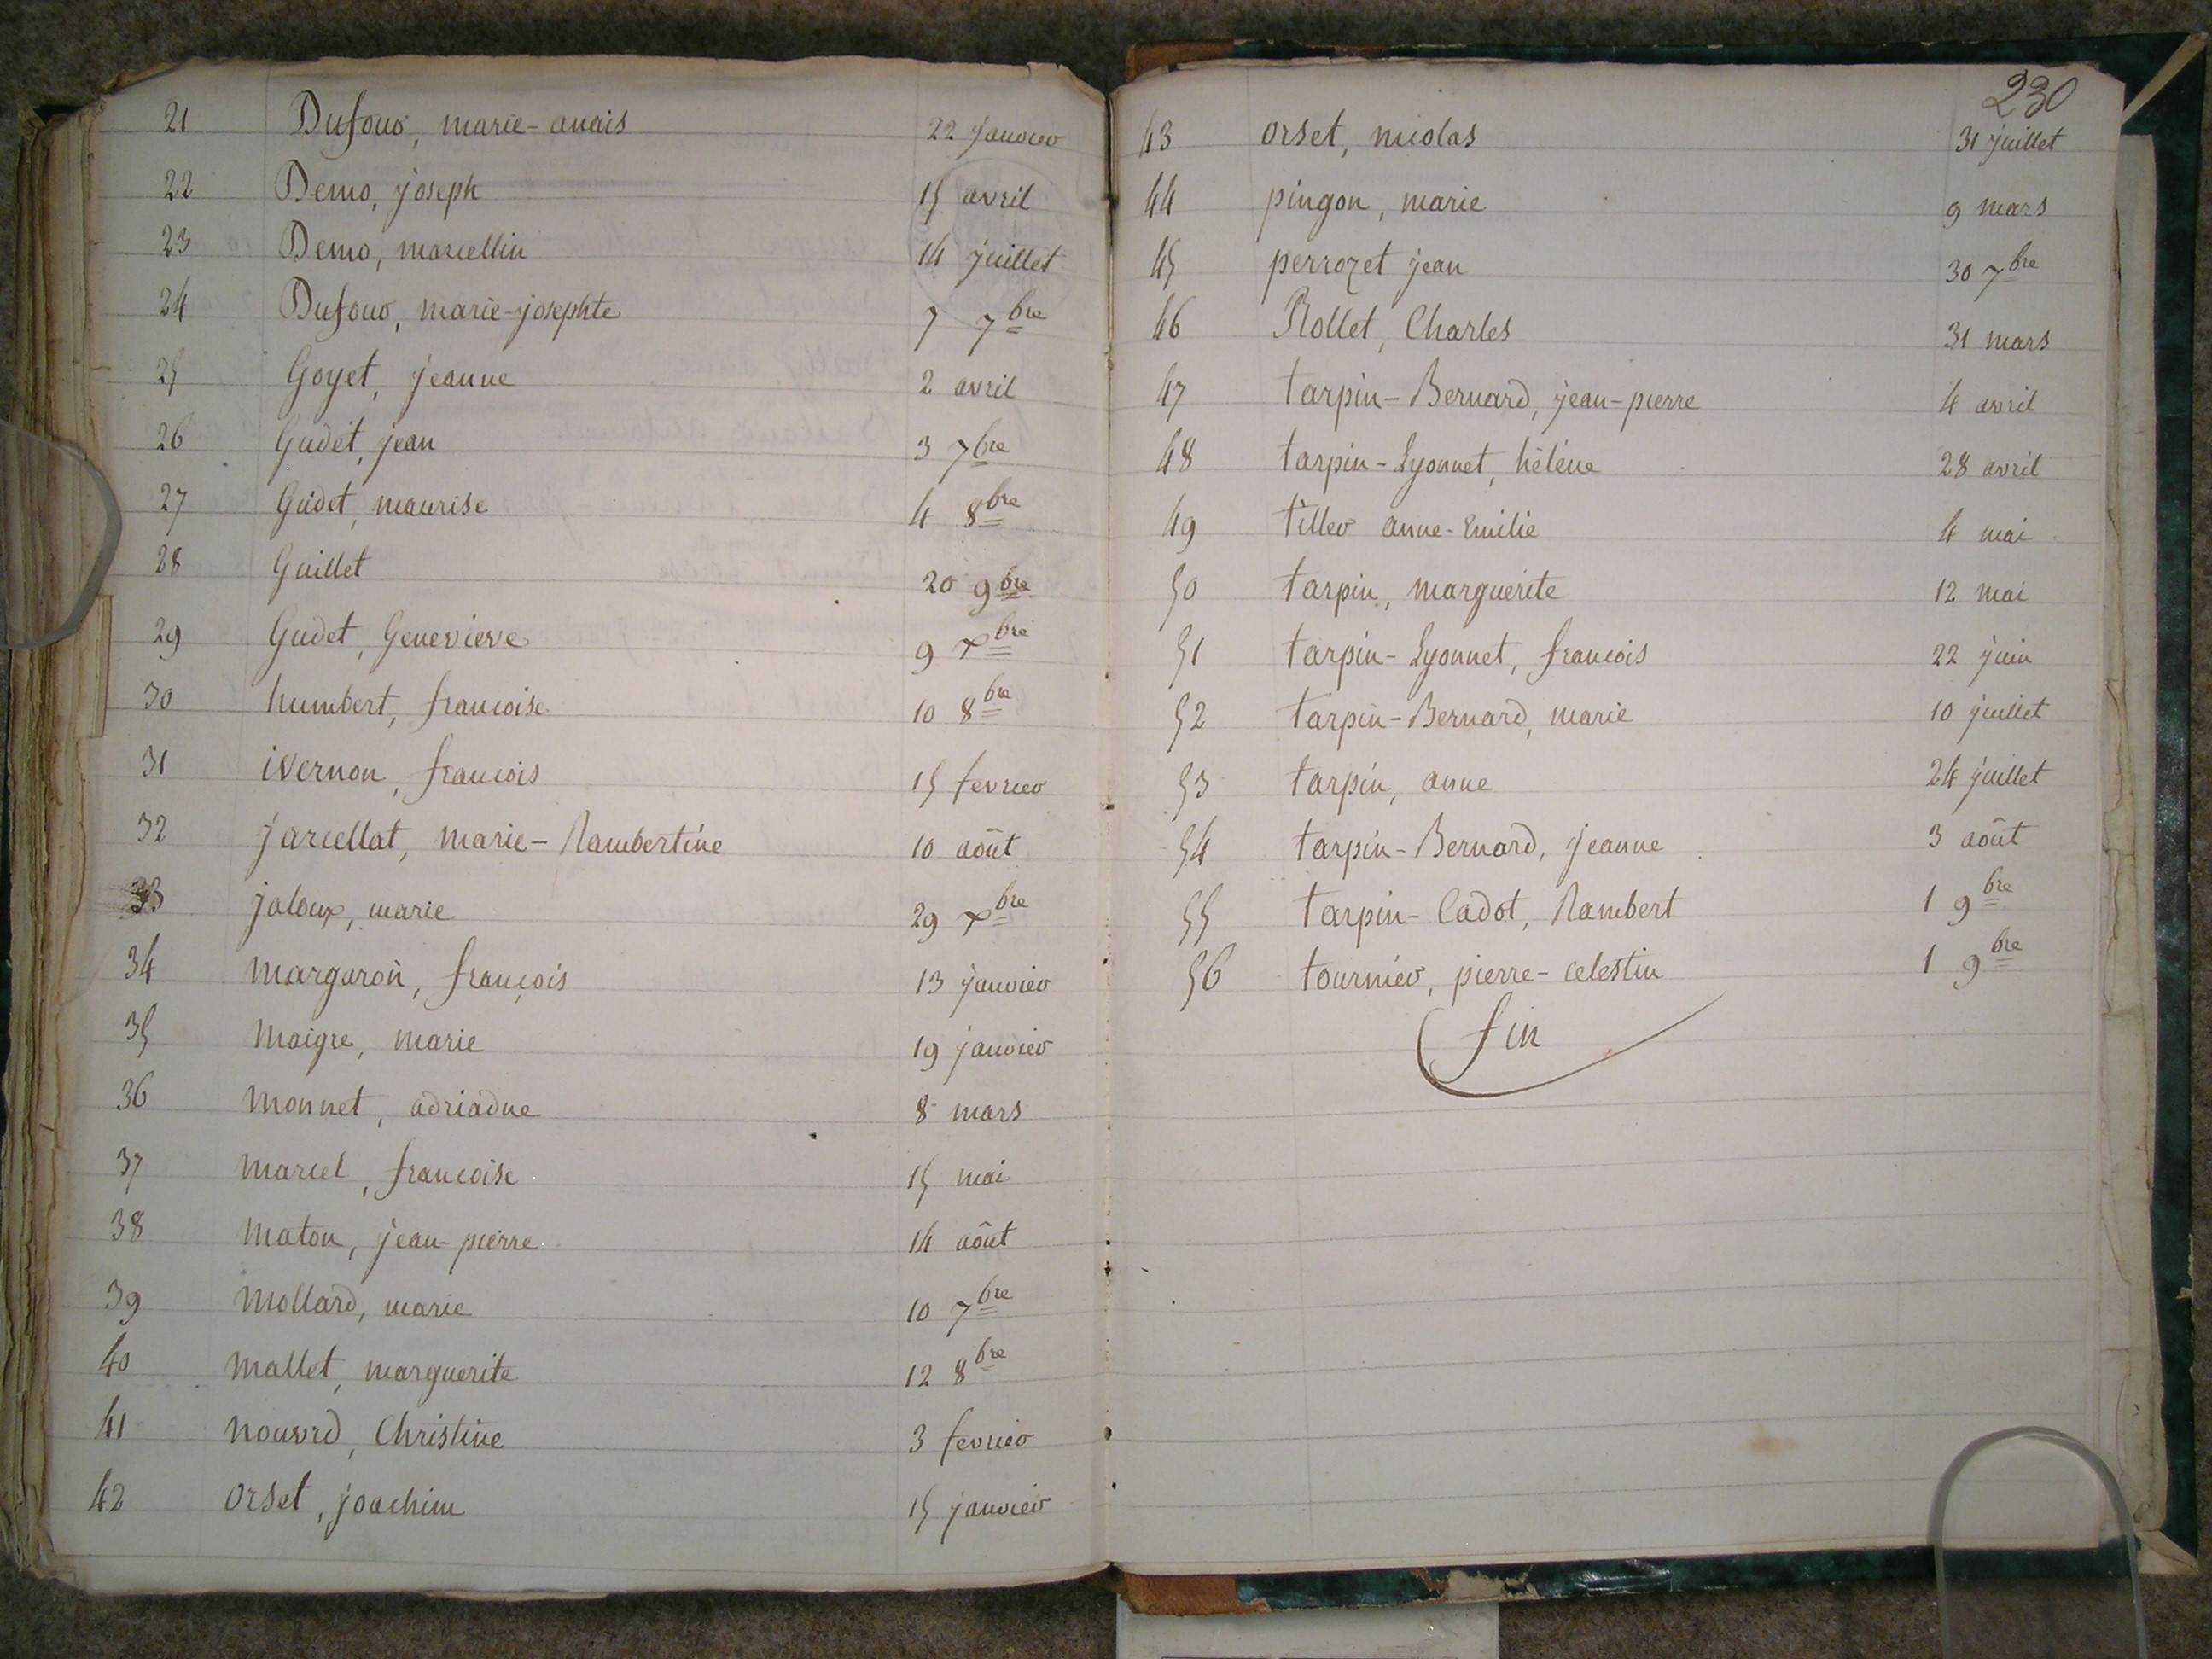 21 Dufour, marie-anais 22 janvier
22 Demo, joseph 15 avril
23 Demo, marcellin 14 juillet
24 Dufour, marie-josephte 7 7bre
25 Goyet, jeanne 2 avril
26 Gudet, jean 3 7bre
27 Gudet, maurise 4 8bre
28 Guillet 20 9bre
29 Gudet, Genevieve 9 xbre
30 humbert, francoise 10 8bre
31 ivernon, francois 15 fevrier
32 jarcellat, marie-Rambertine 10 août
33 jaloux, marie 29 xbre
34 margaron, françois 13 janvier
35 maigre, marie 19 janvier
36 monnet, adriadne 8 mars
37 marcel, francoise 15 mai
38 maton, jean-pierre 14 août
39 mollard, marie 10 7bre
40 mallet, marguerite 12 8bre
41 nouvrd, Christine 3 fevrier
42 orset, joachim 15 janvier
230
43 orset, nicolas 31 juillet
44 pingon, marie 9 mars
45 perrozet jean 30 7bre
46 Rollet, Charles 31 mars
47 tarpin-Bernard, jean-pierre 4 avril
48 tarpin-Lyonnet, hélène 28 avril
49 tiller anne-Emilie 4 mai
50 tarpin, marguerite 12 mai
51 tarpin-Lyonnet, francois 22 juin
52 tarpin-Bernard, marie 10 juillet
53 tarpin, anne 24 juillet
54 tarpin-Bernard, jeanne 3 août
55 tarpin-Cadot, Rambert 1 9bre
56 tournier, pierre-celestin 1 9bre
fin